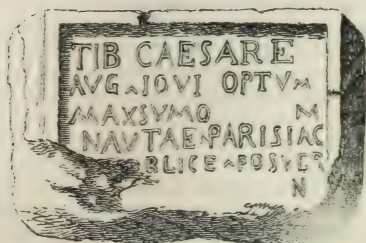 TIB CAESARE
AVG IOVI OPTVM
MAXSVMO M
NAVTAE PARISIAC
BLICE POSVER
N